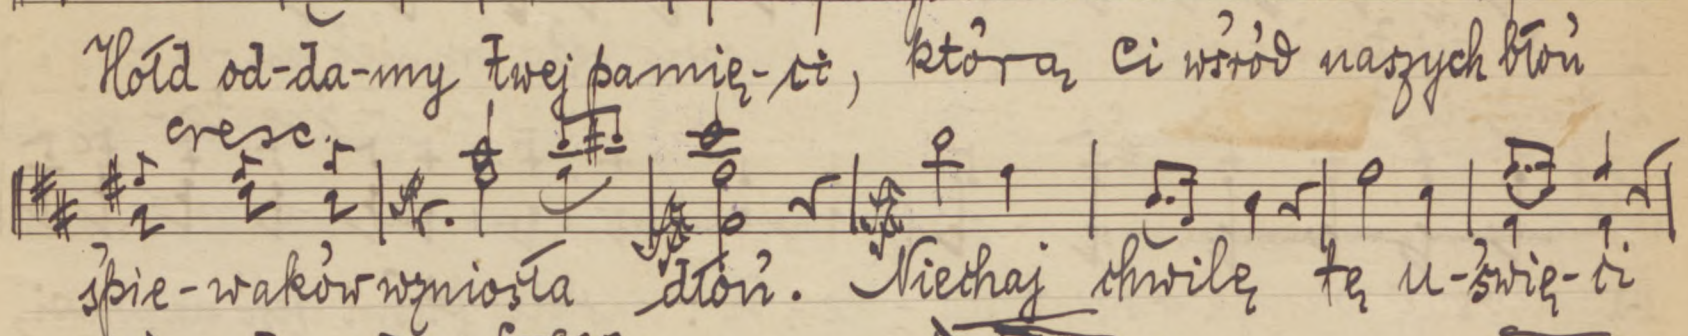 Hołd od-da-my twej pamię-ci, którą Ci wśród naszych błoń
cresc.
śpie-waków wzniosła dłoń. Niechaj chwilę tę u-świę-ci